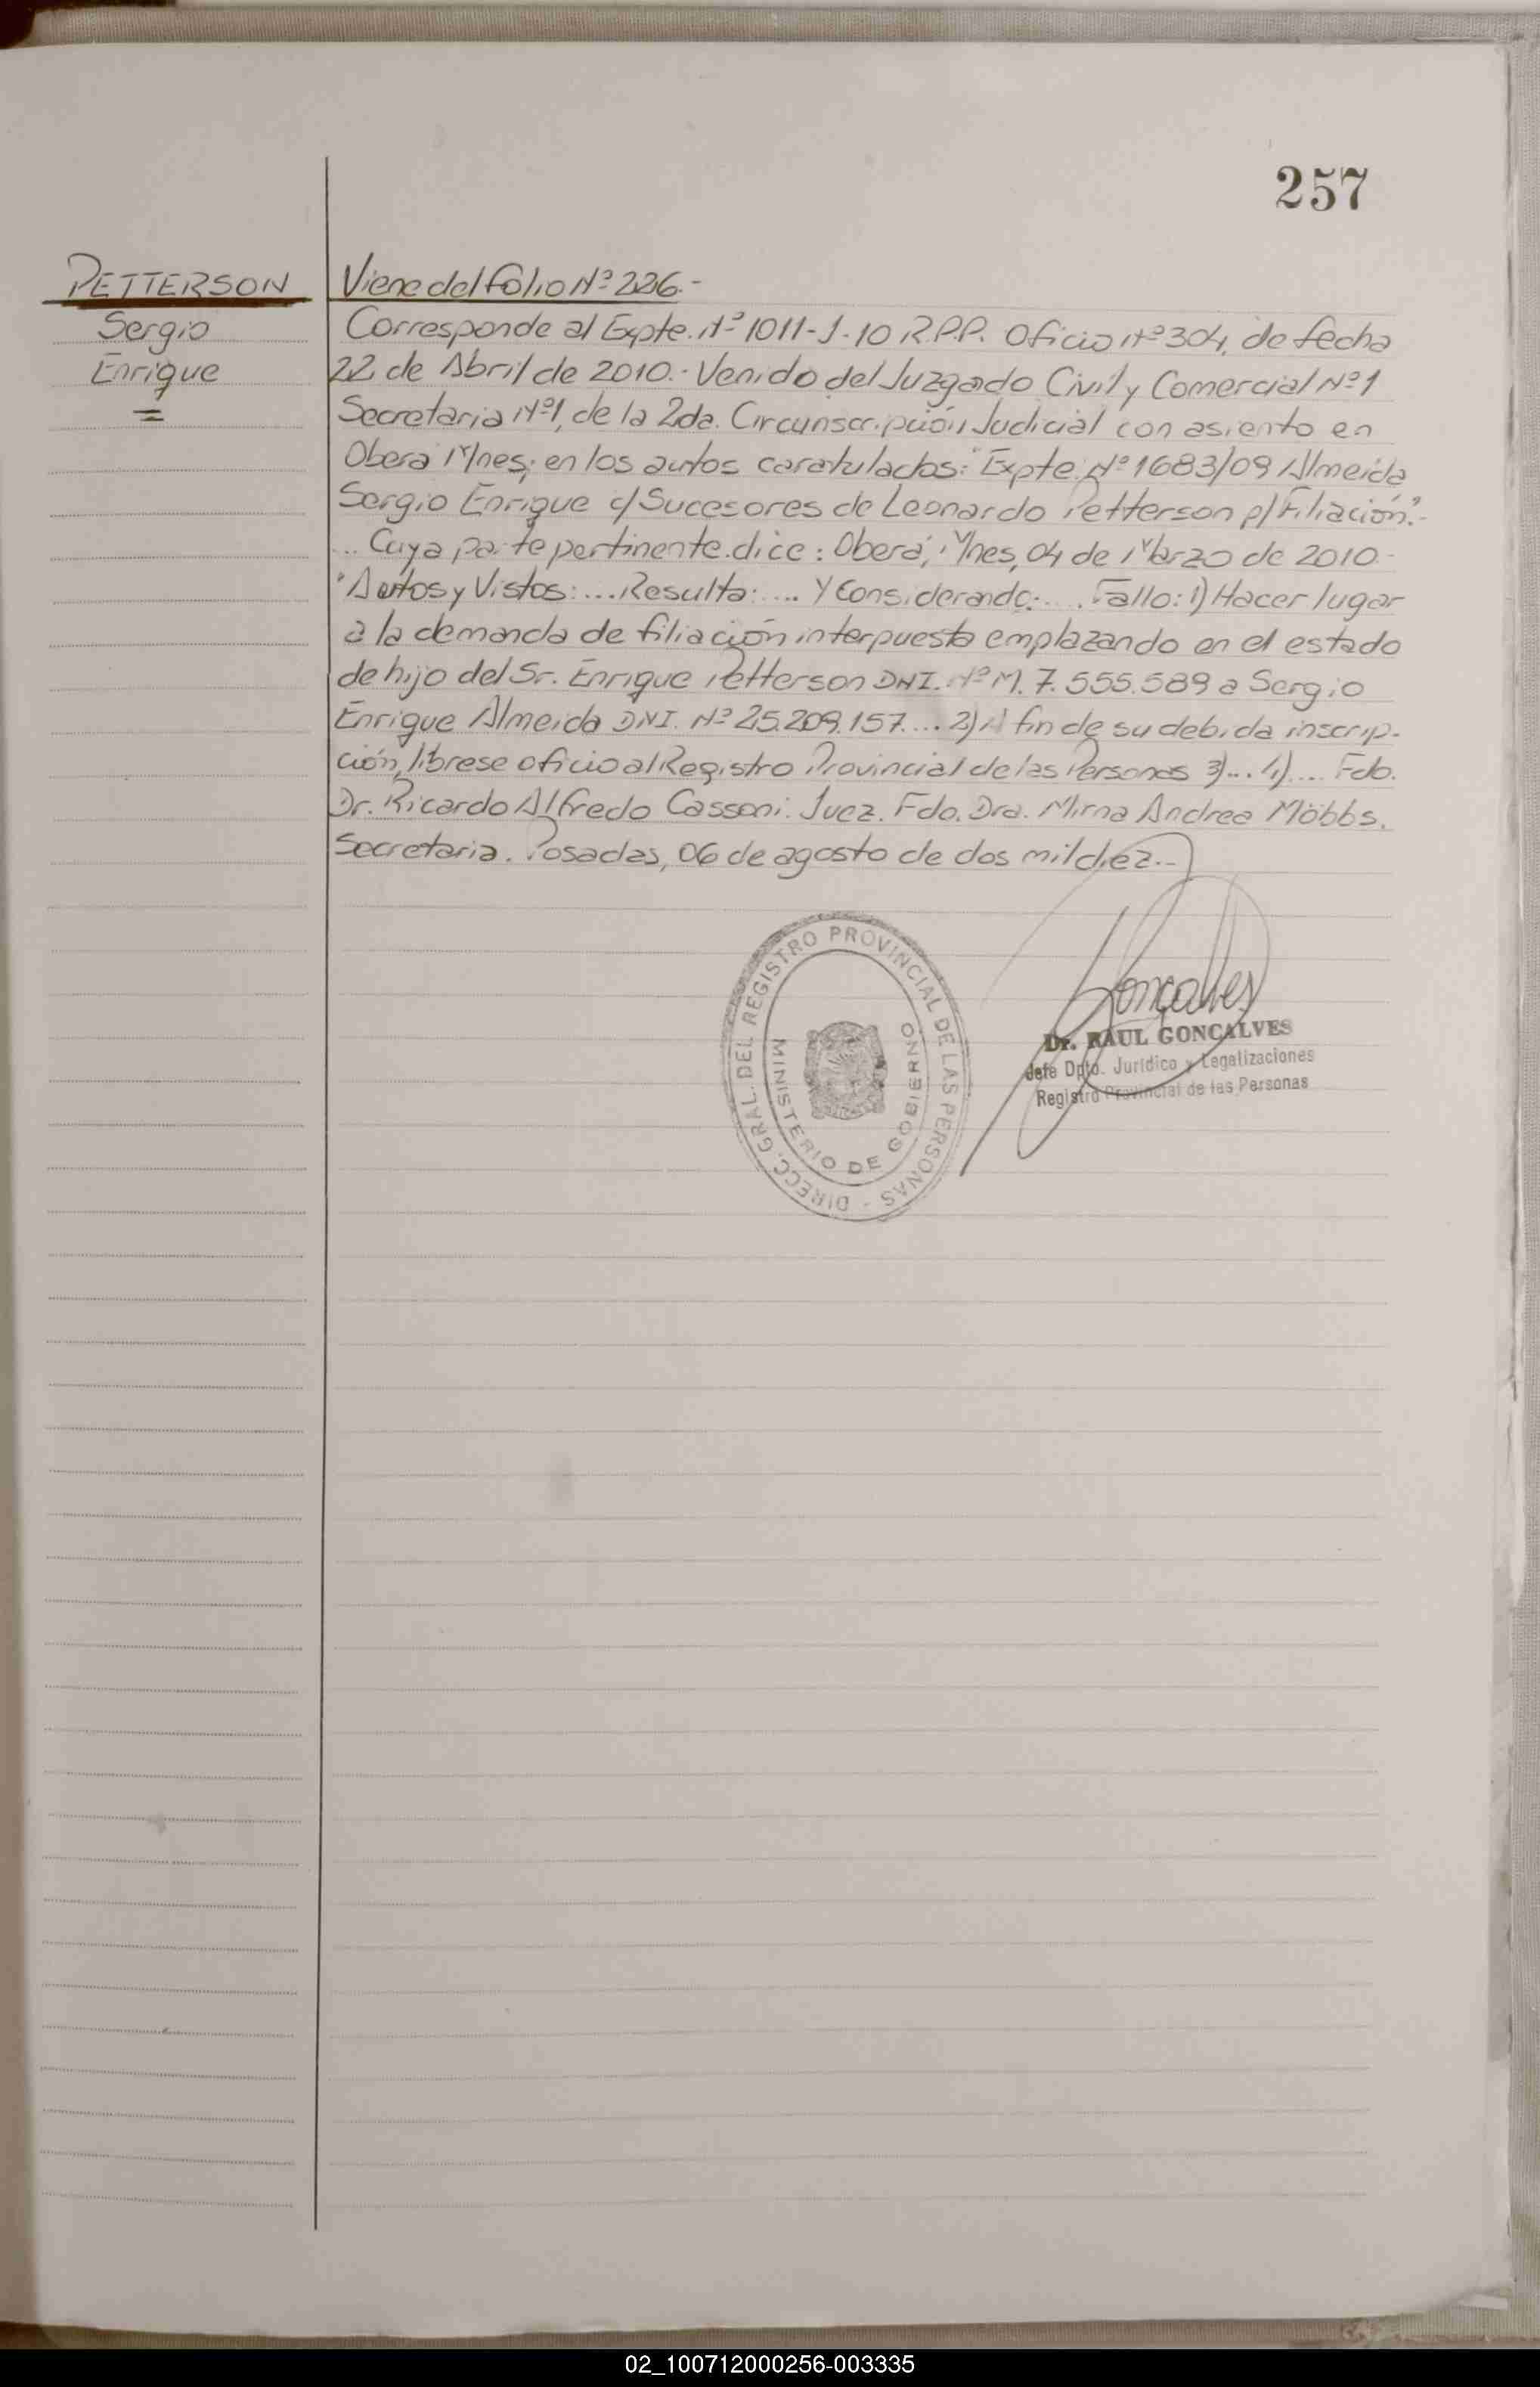 257
PETTERSON
Sergio
Enrique
=
Viene del folio Nº 226.-
Corresponde al Expte. Nº 1011-J-10 R.P.P. Oficio nº 304, de fecha
22 de Abril de 2010.- Venido del Juzgado Civil y Comercial Nº 1
Secretaria Nº1, de la 2da. Circunscripción Judicial con asiento en
Obera Mnes; en los autos caratulados: "Expte. Nº 1683/09 Almeida
Sergio Enrique c/ Sucesores de Leonardo Petterson p/ Filiación".-
... Cuya parte pertinente dice: Oberá, Mnes, 04 de Marzo de 2010.-
"Autos y Vistos: ... Resulta: .... Y Considerando: ... Fallo: 1) Hacer lugar
a la demanda de filiación interpuesta emplazando en el estado
de hijo del Sr. Enrique Petterson DNI. Nº M. 7.555.589 a Sergio
Enrique Almeida DNI. Nº 25.209.157.... 2) A fin de su debida inscrip-
ción, librese oficio al Registro Provincial de las Personas 3)... 4).... Fdo.
Dr. Ricardo Alfredo Cassoni. Juez. Fdo. Dra. Mirna Andrea Möbbs.
Secretaria. Posadas, 06 de agosto de dos mil diez.-
DIRECC. GRAL. DEL REGISTRO PROVINCIAL DE LAS PERSONAS -
MINISTERIO DE GOBIERNO
Gonçalves
Dr. RAUL GONCALVES
Jefe Dpto. Jurídico y Legalizaciones
Registro Provincial de las Personas
02_100712000256-003335